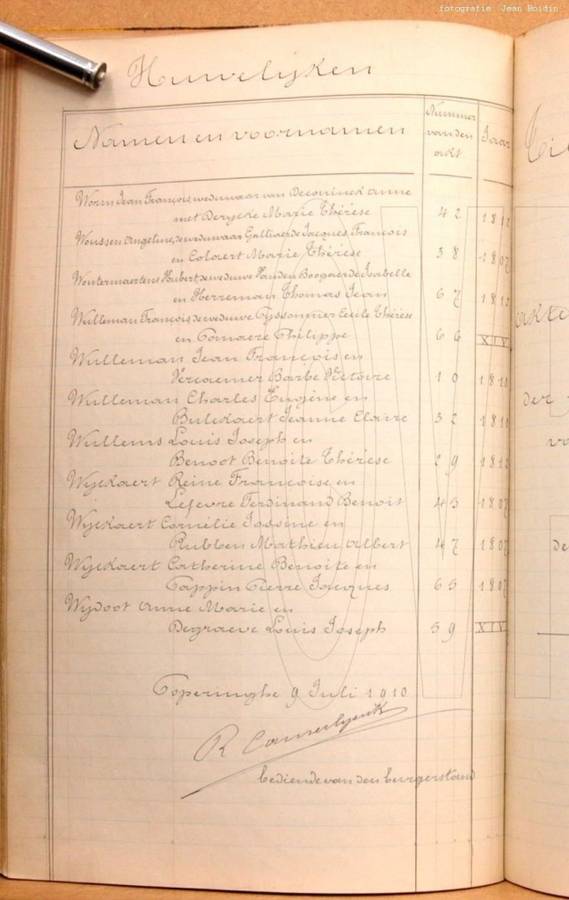 fotografie Jean Boidin
Huwelijken
Namen en voornamen
Nummer van den akt
Jaar
Worm Jean François, weduwaar van Deconinck Anne
met Derycke Marie Thérèse 42 1812
Woussen Angeline, de weduwaar Jacques, François
en Colaert Marie Thérèse 38 1807
Woutermaertens Hubert de weduwe Vanden Boogaerde Isabelle
en Herreman Thomas Jean 67 1812
Wulleman François de weduwe Cecile Thérèse
en Philippe 66 XIV
Wulleman Jean François en
Vercoemer Barbe Victoire 10 1810
Wulleman Charles Eugène en
Bulckaert Jeanne Claire 32 1810
Wullems Louis Joseph en
Benoot Benoite Thérèse 29 1812
Wyckaert Reine Françoise en
Lefevre Ferdinand Benoit 43 1807
Wyckaert Cornélie Jossine en
Rubben Mathieu Albert 47 1807
Wyckaert Catherine Benoite en
Pappin Pierre Jacques 63 1807
Wydoot Anne Marie en
Degraeve Louis Joseph 59 XIV
Poperinghe 9 Juli 1910
R
bediende van den burgerstand